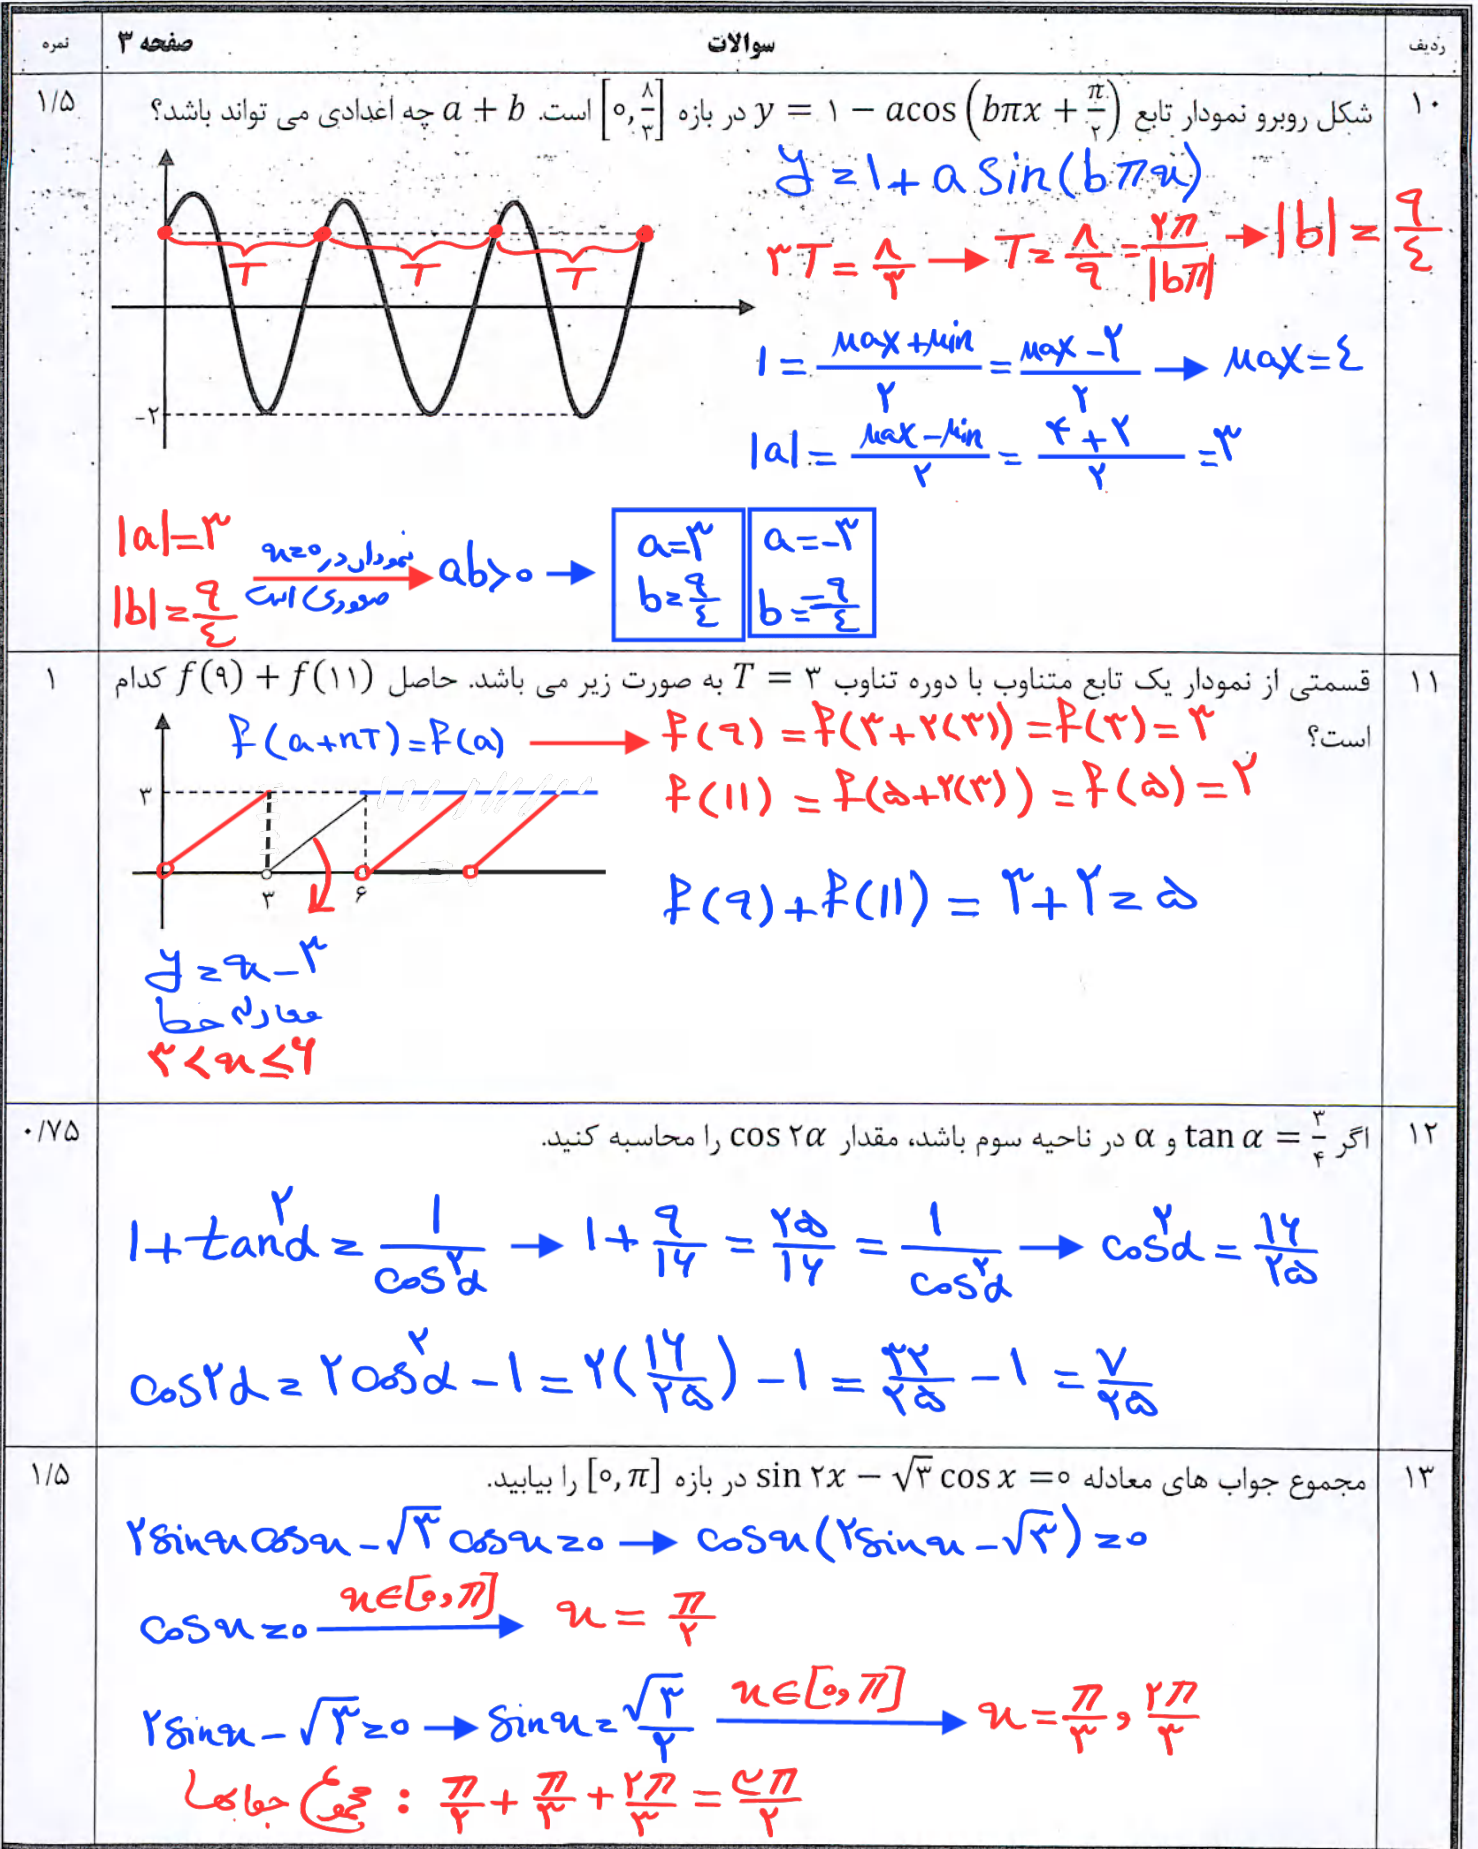 ردیف سوالات صفحه ۳ نمره
۱۰ شکل روبرو نمودار تابع y = ۱ − acos (bπx + π/۲) در بازه [۰, ۸/۳] است. a + b چه اعدادی می تواند باشد؟ ۱/۵
y = 1 + a sin(bπx)
۳T = ۸/۳ → T = ۸/۹ = ۲π/|bπ| → |b| = ۹/٤
T T T
1 = (Max + Min)/۲ = (Max − ۲)/۲ → Max = ٤
−۲
|a| = (Max − Min)/۲ = (۴ + ۲)/۲ = ۳
|a| = ۳
|b| = ۹/٤
نمودار در x=0 صعودی است
ab > 0 →
a = ۳
b = ۹/٤
a = −۳
b = −۹/٤
۱۱ قسمتی از نمودار یک تابع متناوب با دوره تناوب T = ۳ به صورت زیر می باشد. حاصل f(۹) + f(۱۱) کدام ۱
است؟
f(a+nT) = f(a) → f(۹) = f(۳+۲(۳)) = f(۳) = ۳
f(۱۱) = f(۵+۲(۳)) = f(۵) = ۲
۳
۳ ۶
f(۹) + f(۱۱) = ۳ + ۲ = ۵
y = x − ۳
معادله خط
۳ < x ≤ ۶
۱۲ اگر tan α = ۳/۴ و α در ناحیه سوم باشد، مقدار cos ۲α را محاسبه کنید. ۰/۷۵
1 + tan^۲ α = 1/cos^۲ α → 1 + ۹/۱۶ = ۲۵/۱۶ = 1/cos^۲ α → cos^۲ α = ۱۶/۲۵
cos ۲α = ۲cos^۲ α − 1 = ۲(۱۶/۲۵) − 1 = ۳۲/۲۵ − 1 = ۷/۲۵
۱۳ مجموع جواب های معادله sin ۲x − √۳ cos x = ۰ در بازه [۰, π] را بیابید. ۱/۵
۲sinx cosx − √۳ cosx = 0 → cosx(۲sinx − √۳) = 0
cosx = 0 x∈[۰,π] → x = π/۲
۲sinx − √۳ = 0 → sinx = √۳/۲ x∈[۰,π] → x = π/۳ , ۲π/۳
مجموع جوابها : π/۲ + π/۳ + ۲π/۳ = ۳π/۲